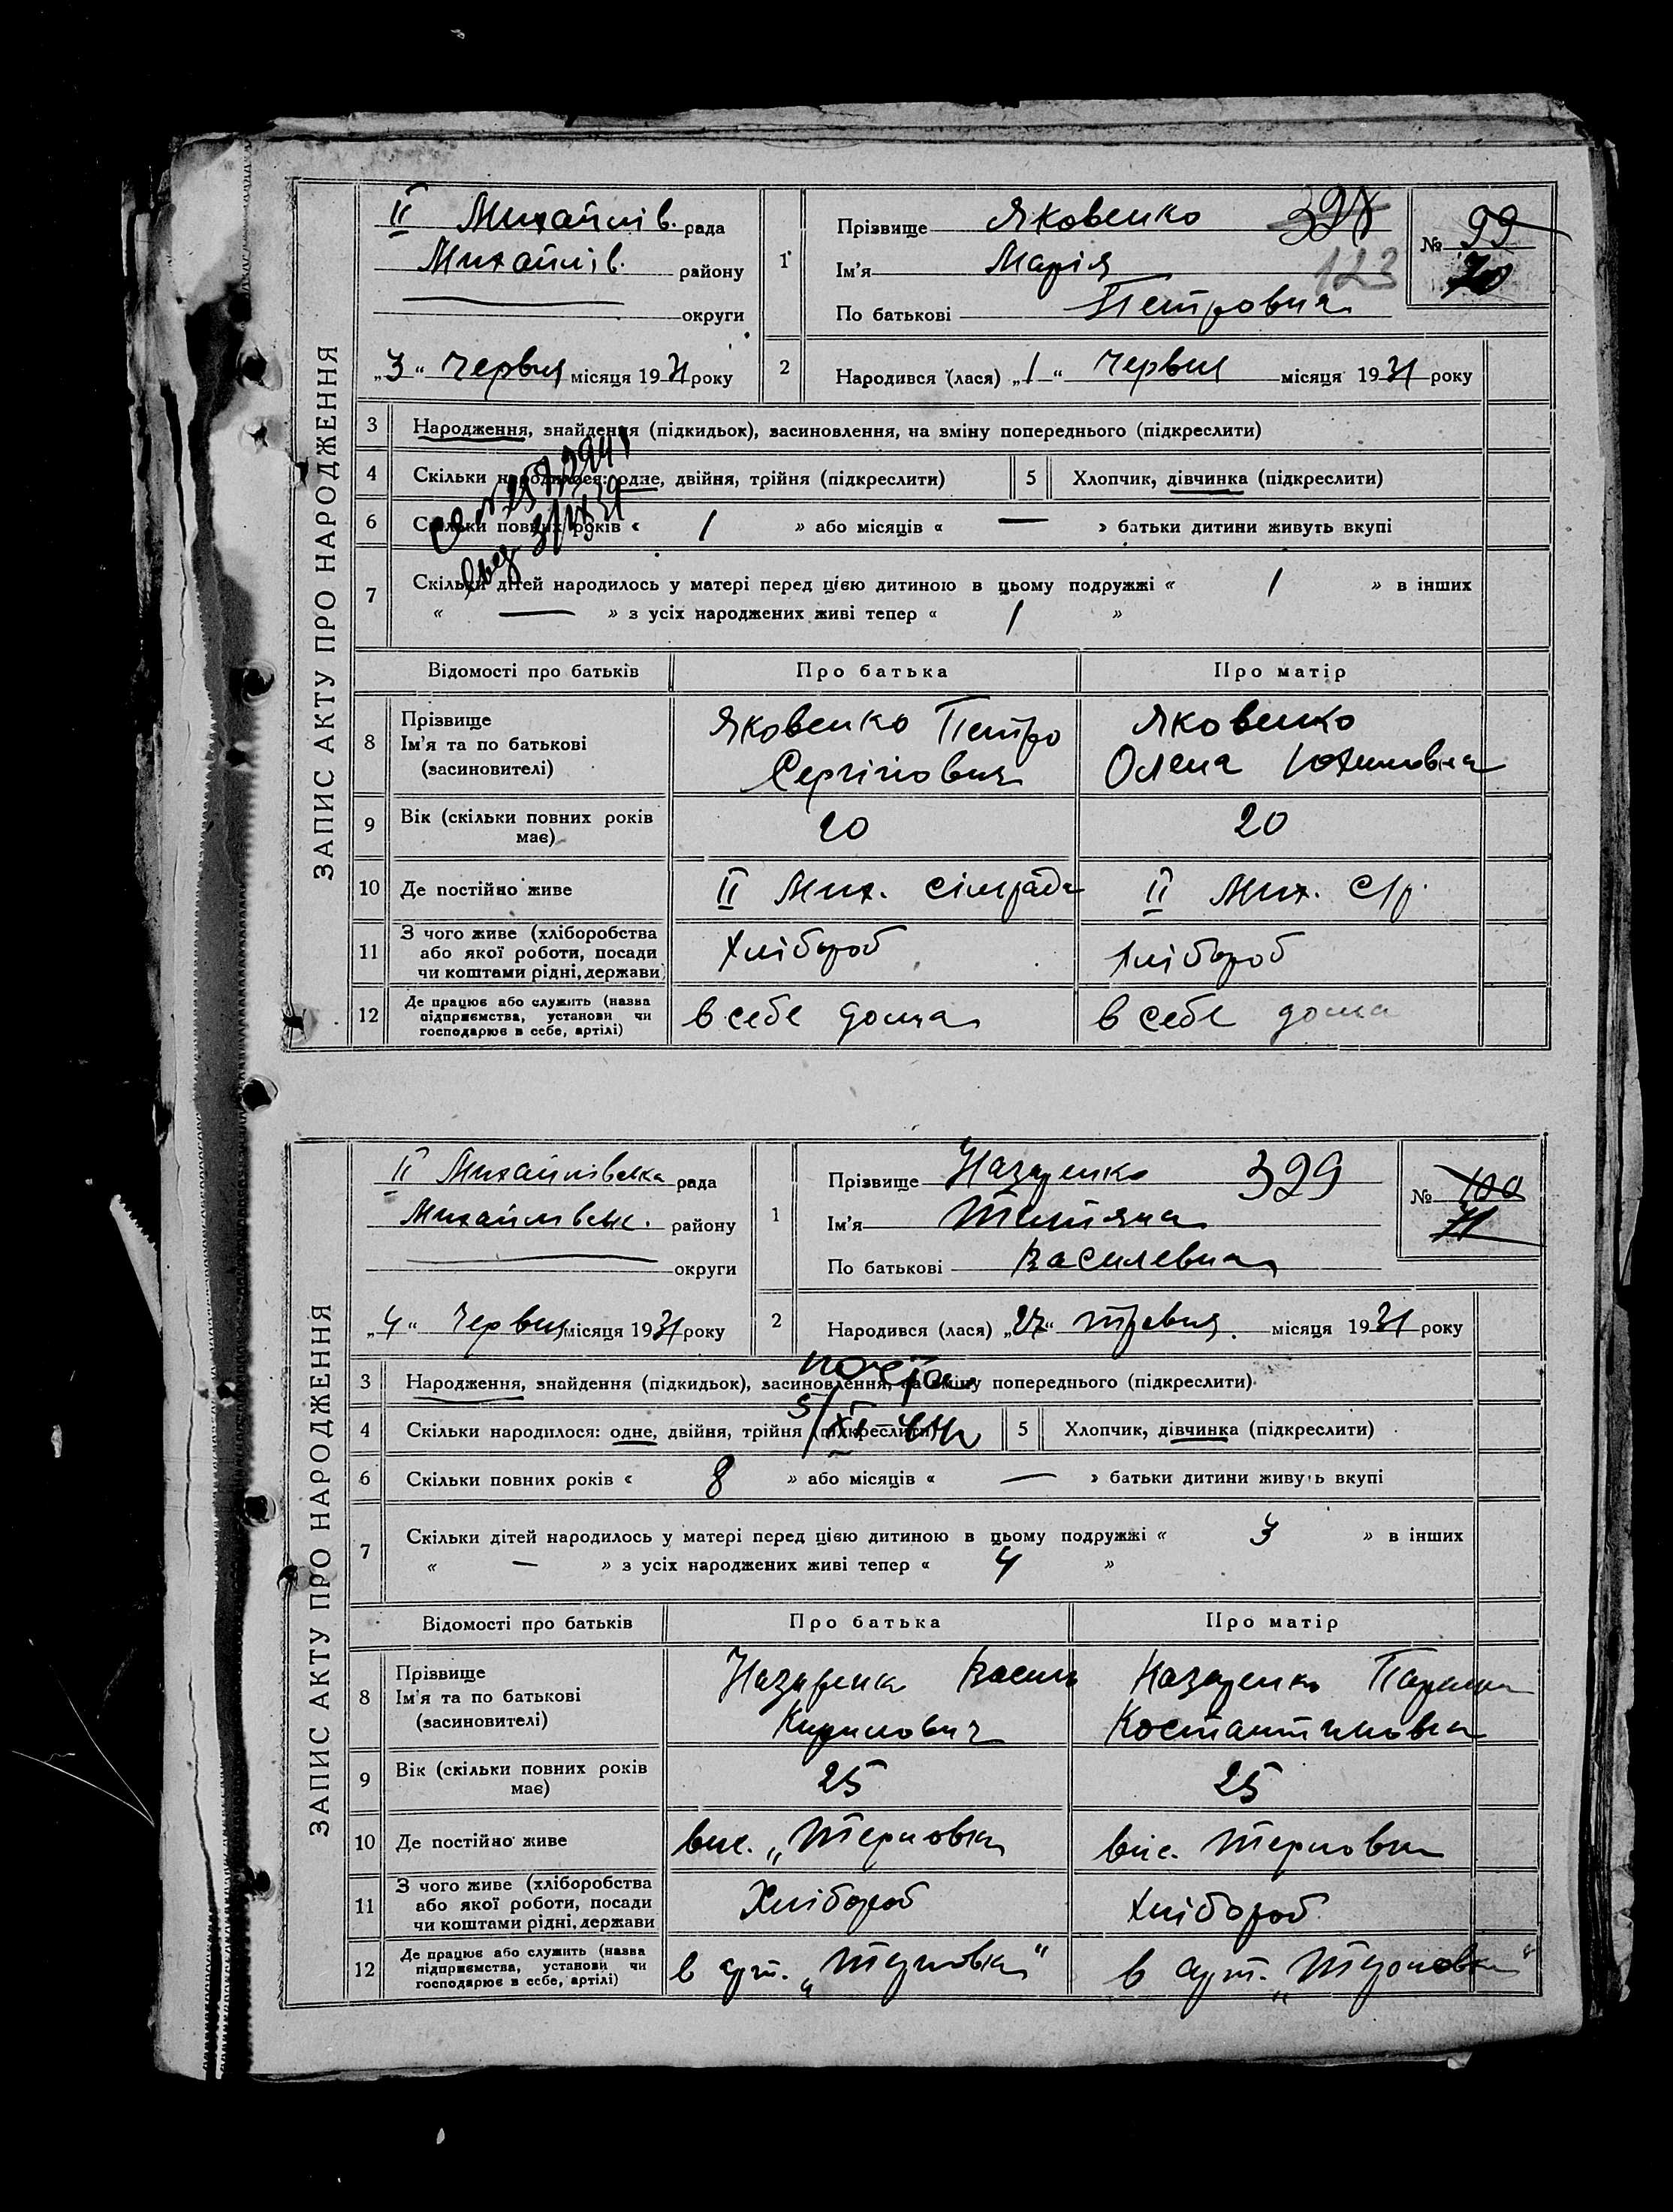 ЗАПИС АКТУ ПРО НАРОДЖЕННЯ
ІІ Михайлів. рада
Михайлів. району
округи
„3“ Червня місяця 1931 року
1 Прізвище Яковенко 398
Ім'я Марія 123
По батькові Петровна
№ 99
70
2 Народився (лася) „1“ Червня місяця 1931 року
3 Народження, знайдення (підкидьок), засиновлення, на зміну попереднього (підкреслити)
4 Скільки народилося: одне, двійня, трійня (підкреслити)
5 Хлопчик, дівчинка (підкреслити)
6 Скільки повних років « 1 » або місяців « — » батьки дитини живуть вкупі
7 Скільки дітей народилось у матері перед цією дитиною в цьому подружжі « 1 » в інших
« — » з усіх народжених живі тепер « 1 »
Відомості про батьків Про батька Про матір
8 Прізвище
Ім'я та по батькові
(засиновителі)
Яковенко Петро
Сергійович
Яковенко
Олена
9 Вік (скільки повних років
має)
20 20
10 Де постійно живе ІІ Мих. сільрада ІІ Мих. С/р.
11 З чого живе (хліборобства
або якої роботи, посади
чи коштами рідні, держави)
Хлібороб Хлібороб
12 Де працює або служить (назва
підприємства, установи чи
господарює в себе, артілі)
в себе дома в себе дома
ЗАПИС АКТУ ПРО НАРОДЖЕННЯ
ІІ Михайлівська рада
Михайлівськ. району
округи
„4“ Червня місяця 1931 року
1 Прізвище Назаренко 399
Ім'я Тетяна
По батькові Василевна
№ 100
71
2 Народився (лася) „27“ травня місяця 1931 року
3 Народження, знайдення (підкидьок), засиновлення, на зміну попереднього (підкреслити)
4 Скільки народилося: одне, двійня, трійня (підкреслити)
5 Хлопчик, дівчинка (підкреслити)
6 Скільки повних років « 8 » або місяців « — » батьки дитини живуть вкупі
7 Скільки дітей народилось у матері перед цією дитиною в цьому подружжі « 3 » в інших
« — » з усіх народжених живі тепер « 4 »
Відомості про батьків Про батька Про матір
8 Прізвище
Ім'я та по батькові
(засиновителі)
Назаренко Василь
Кирилович
Назаренко
Костантиновна
9 Вік (скільки повних років
має)
25 25
10 Де постійно живе вис. „Терновка вис. Терновка
11 З чого живе (хліборобства
або якої роботи, посади
чи коштами рідні, держави
Хлібороб Хлібороб
12 Де працює або служить (назва
підприємства, установи чи
господарює в себе, артілі)
в арт. „Терновка“ в арт. „Терновка“